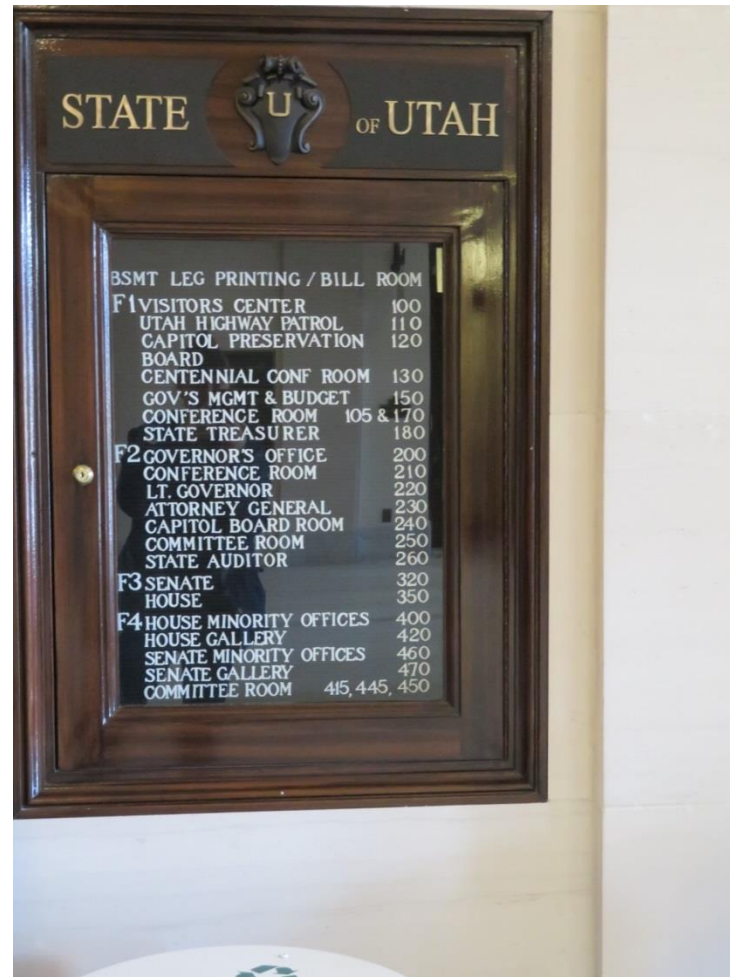 STATE U OF UTAH
BSMT LEG PRINTING / BILL ROOM
F1 VISITORS CENTER 100
UTAH HIGHWAY PATROL 110
CAPITOL PRESERVATION 120
BOARD
CENTENNIAL CONF ROOM 130
GOV'S MGMT & BUDGET 150
CONFERENCE ROOM 105 & 170
STATE TREASURER 180
F2 GOVERNOR'S OFFICE 200
CONFERENCE ROOM 210
LT. GOVERNOR 220
ATTORNEY GENERAL 230
CAPITOL BOARD ROOM 240
COMMITTEE ROOM 250
STATE AUDITOR 260
F3 SENATE 320
HOUSE 350
F4 HOUSE MINORITY OFFICES 400
HOUSE GALLERY 420
SENATE MINORITY OFFICES 460
SENATE GALLERY 470
COMMITTEE ROOM 415, 445, 450